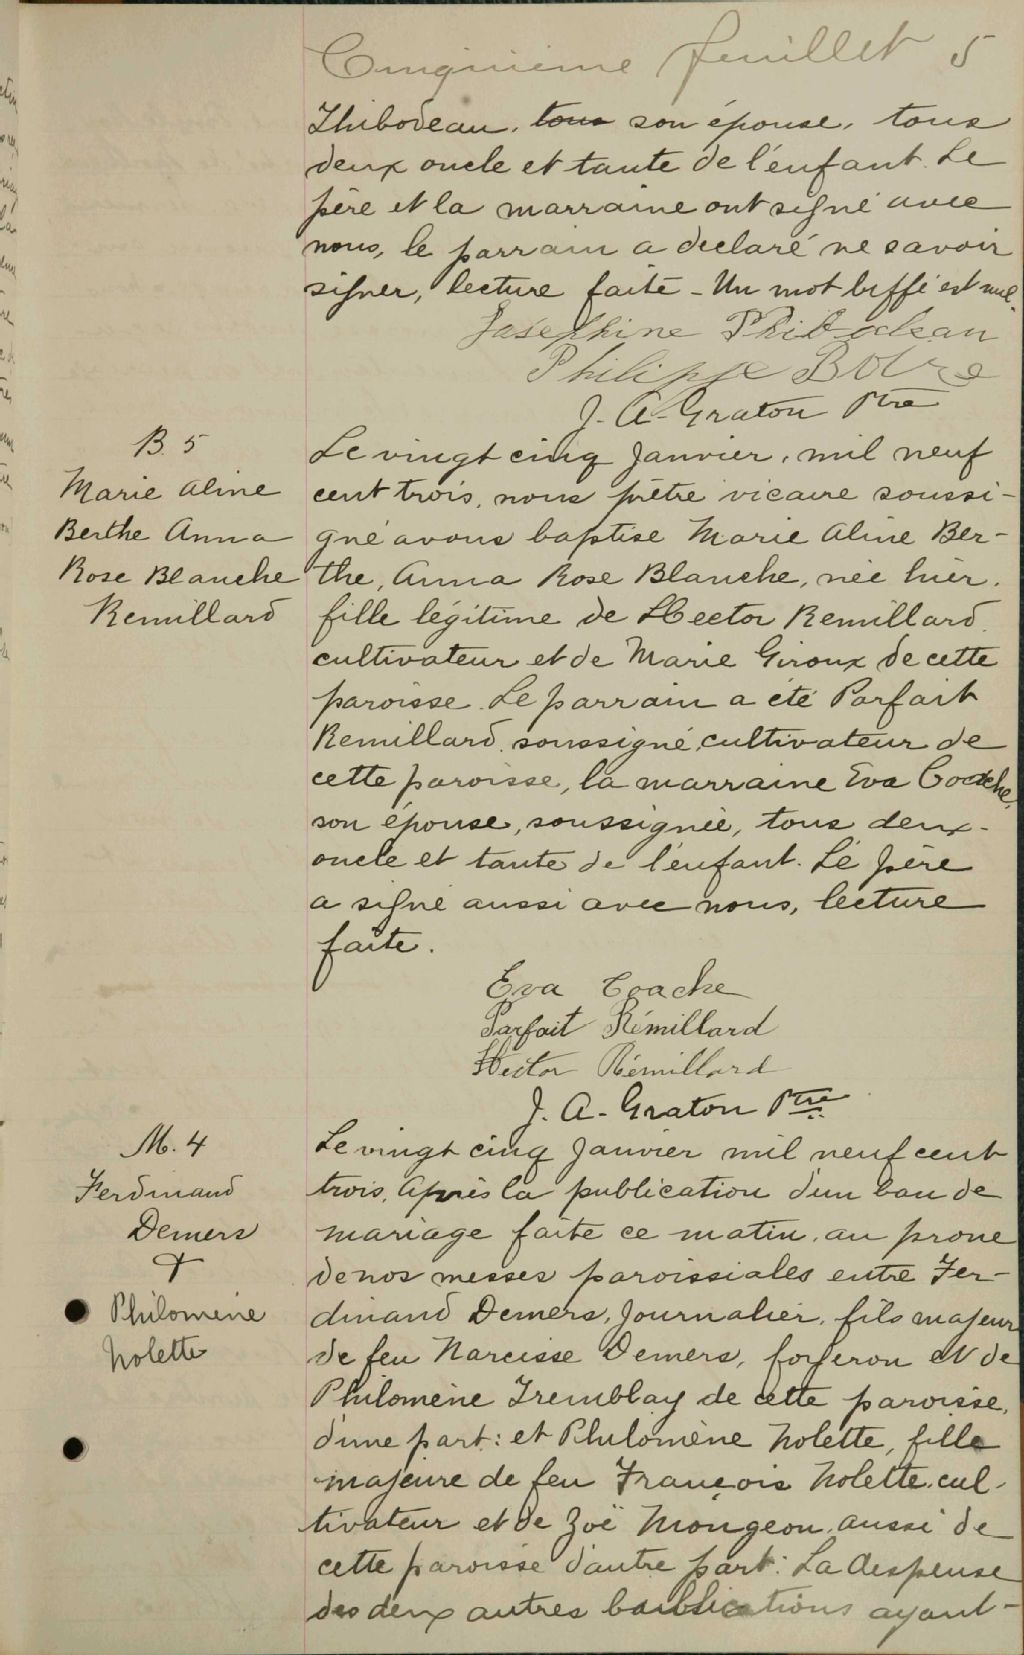 Cinquième feuillet 5
Thibodeau, tous son épouse, tous
deux oncle et tante de l'enfant. Le
père et la marraine ont signé avec
nous, le parrain a declaré ne savoir
signer, lecture faite - Un mot biffé est nul.
Joséphine Thibodeau
Philippe
J. A. Graton Ptre
B. 5
Marie Aline
Berthe Anna
Rose Blanche
Remillard
Le vingt cinq Janvier, mil neuf
cent trois, nous prêtre vicaire soussi-
gné avons baptise Marie Aline Ber-
the, Anna Rose Blanche, née hier,
fille légitime de Hector Remillard
cultivateur et de Marie Giroux de cette
paroisse. Le parrain a été Parfait
Remillard, soussigné, cultivateur de
cette paroisse, la marraine Eva Coache,
son épouse, soussignée, tous deux-
oncle et tante de l'enfant. Le père
a signé aussi avec nous, lecture
faite.
Eva Coache
Parfait Rémillard
Hector Rémillard
J. A. Graton Ptre
M. 4
Ferdinand
Demers
+
Philomene
Nolette
Le vingt cinq Janvier mil neuf cent
trois, Après la publication d'un ban de
mariage faite ce matin, au prone
de nos messes paroissiales entre Fer-
dinand Demers, Journalier, fils majeur
de feu Narcisse Demers, forgeron et de
Philomène Tremblay de cette paroisse,
d'une part: et Philomène Nolette, fille
majeure de feu François Nolette, cul-
tivateur et de Zoë Mongeon, aussi de
cette paroisse d'autre part: La dispense
des deux autres ayant-